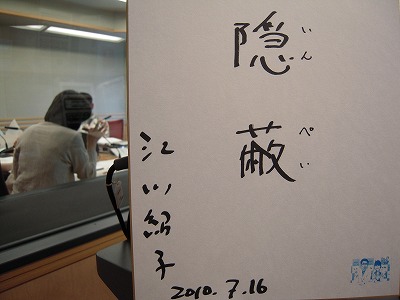 隠蔽
いんぺい
江川紹子
2010.7.16